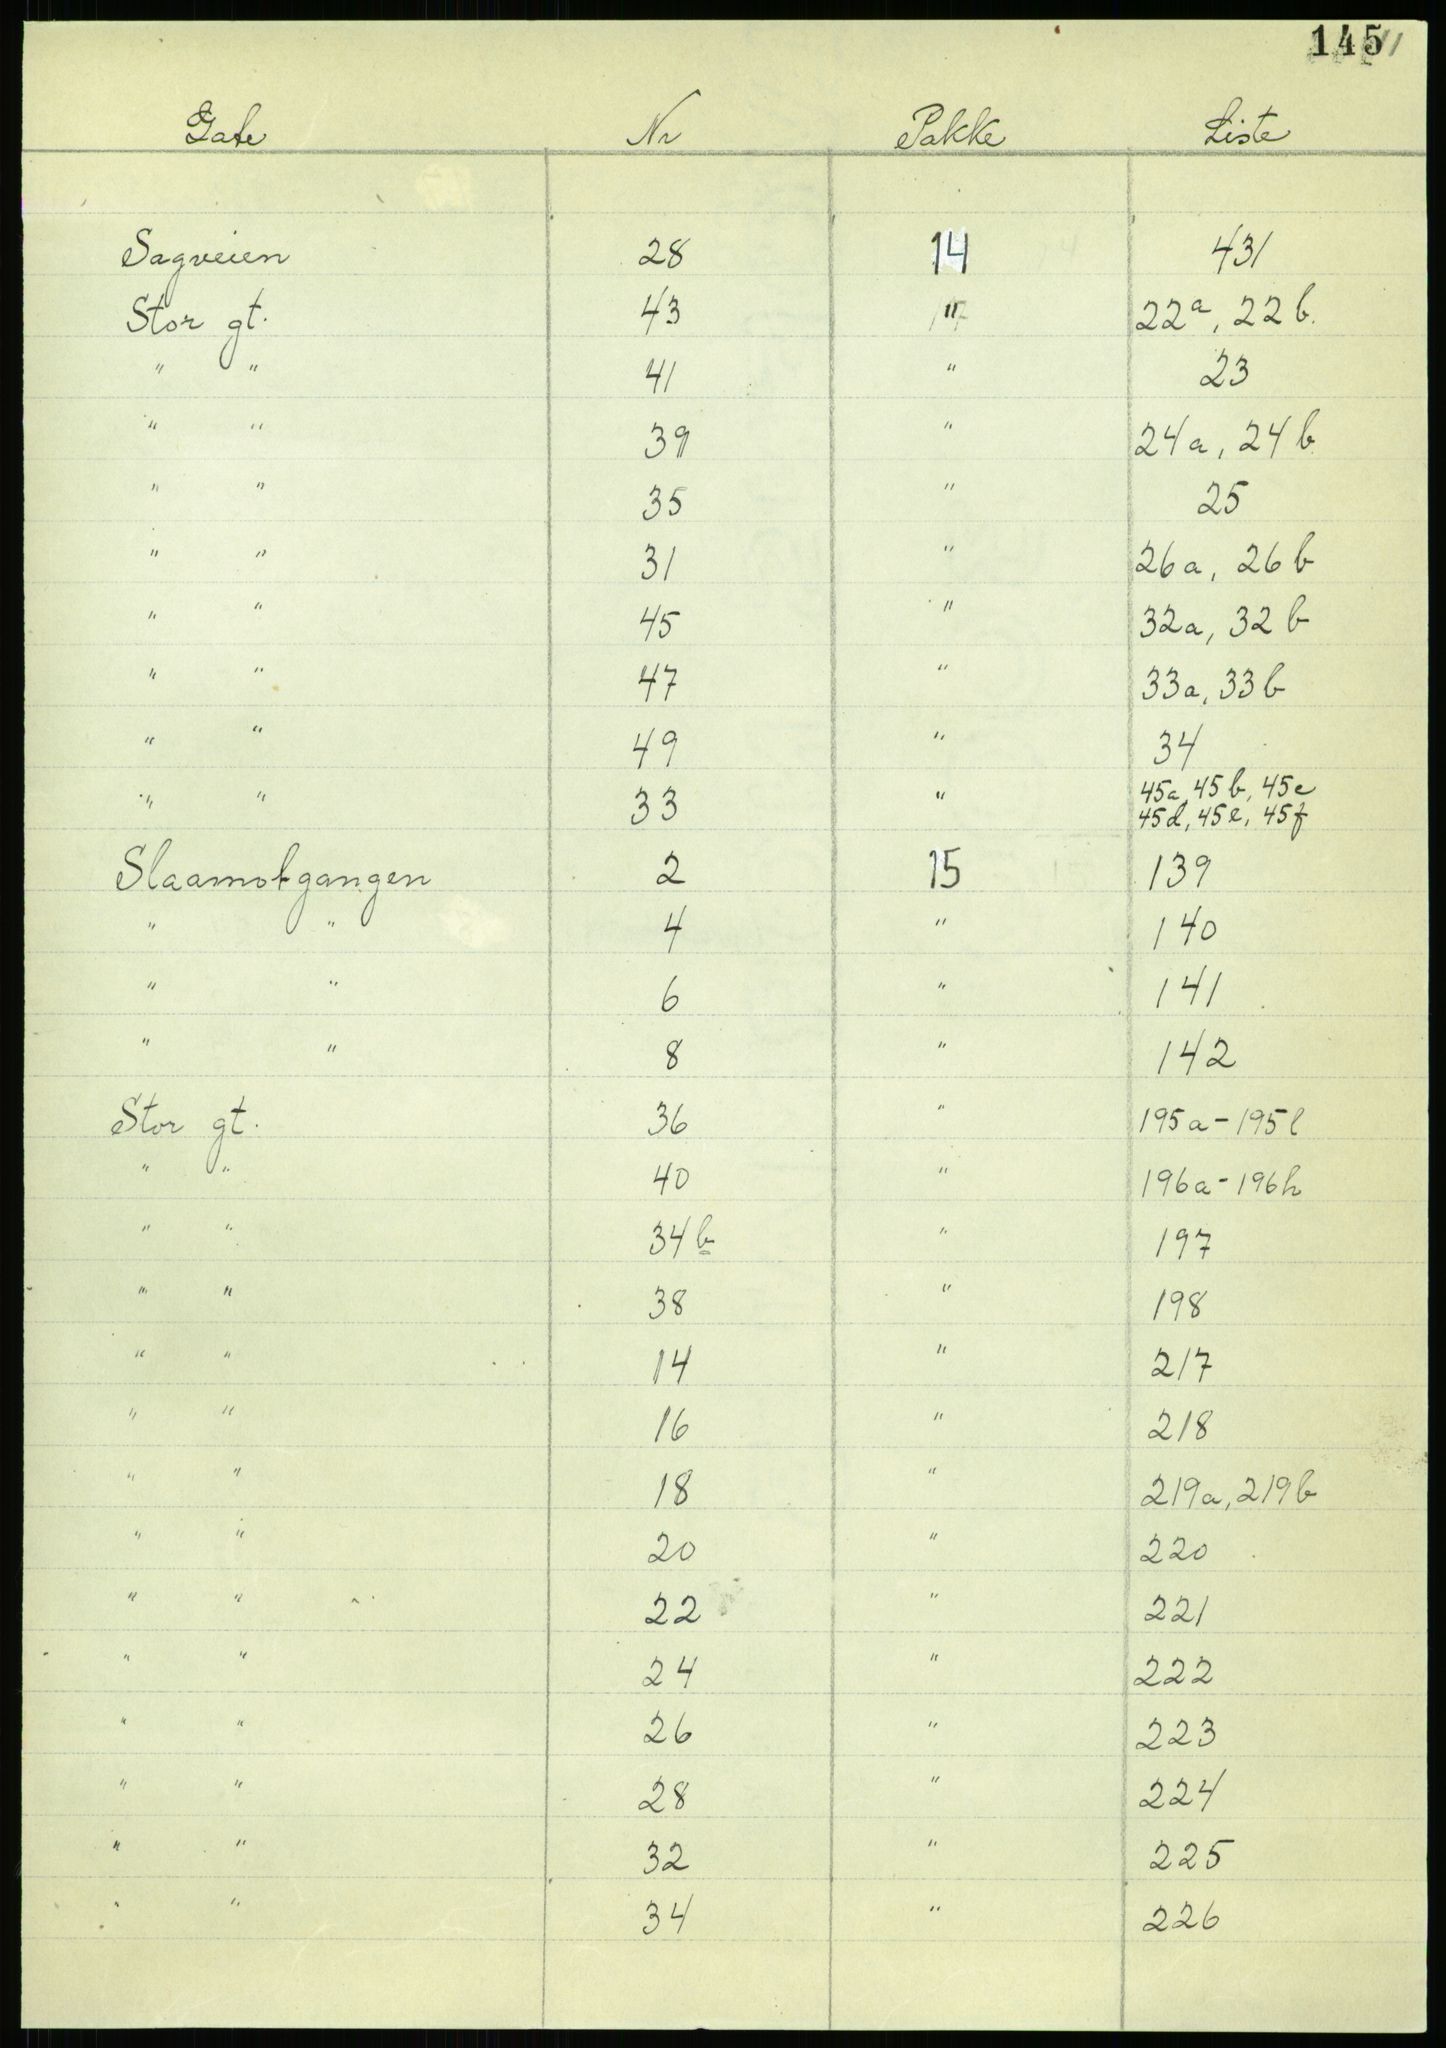 145
Gate Nr Pakke Liste
Sagveien 28 14 431
Stor gt. 43 " 22a, 22 b.
" " 41 " 23
" " 39 " 24a, 24 b
" " 35 " 25
" " 31 " 26a, 26 b
" " 45 " 32a, 32 b
" " 47 " 33a, 33 b
" " 49 " 34
" " 33 " 45a, 45 b, 45c
45d, 45e, 45f
Slaamotgangen 2 15 139
" " 4 " 140
" " 6 " 141
" " 8 " 142
Stor gt. 36 " 195a-195l
" " 40 " 196a-196h
" " 34 b " 197
" " 38 " 198
" " 14 " 217
" " 16 " 218
" " 18 " 219a, 219b
" " 20 " 220
" " 22 " 221
" " 24 " 222
" " 26 " 223
" " 28 " 224
" " 32 " 225
" " 34 " 226